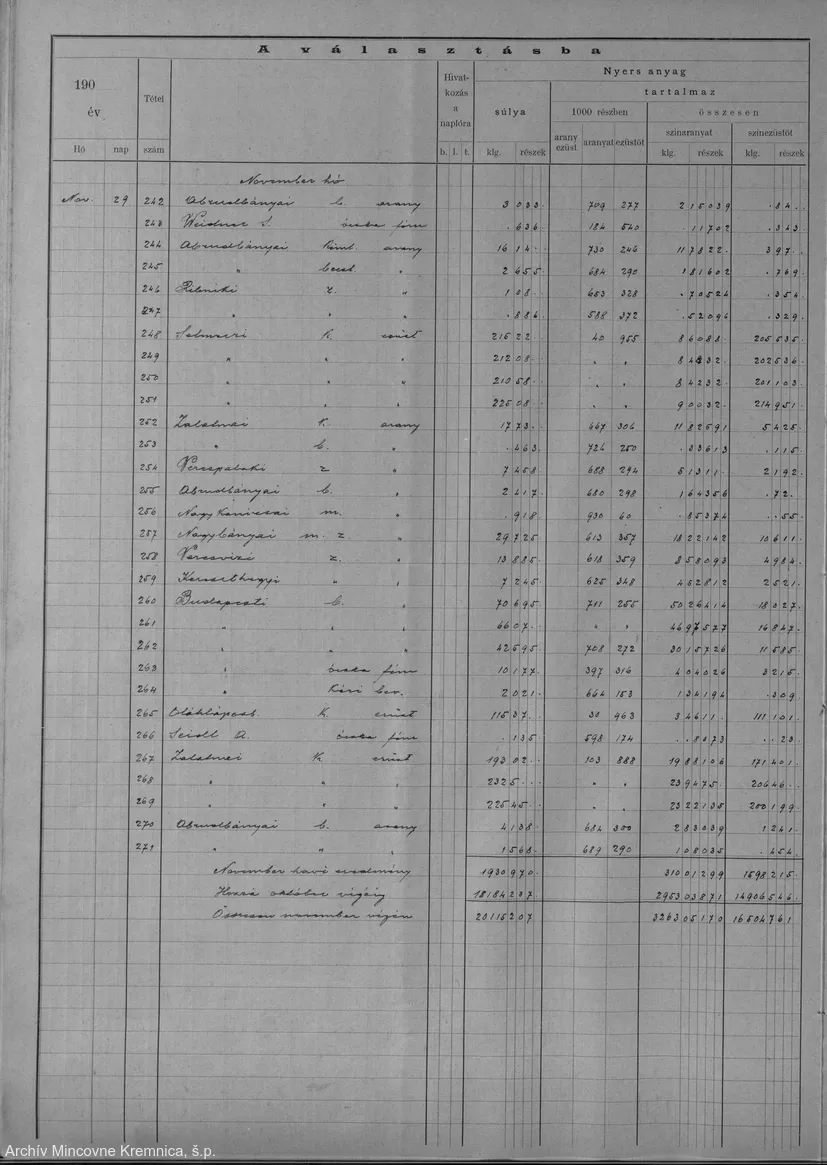 A választásba
190
év
Hó nap
Tétel
szám
Hivat-
kozás
a
naplóra
b. l. t.
Nyers anyag
súlya
klg. részek
tartalmaz
1000 részben
arany
ezüst aranyat ezüstöt
összesen
szinaranyat szinezüstöt
klg. részek klg. részek
November hó
Nov. 29 242 Abrudbányai b. arany 3 033 709 277 2 15039 84
243 Weidner S. ócska fém 636 184 540 11702 343
244 Abrudbányai arany 16 14 730 246 11 7822 397
245 " " 2 655 684 290 1 81602 769
246 Ribniki z. " 108 653 328 70524 354
247 " " " 886 588 372 52096 329
248 Selmeczi K. ezüst 215 22 40 955 8 6088 205 535
249 " " " 212 08 " " 8 4832 202 536
250 " " " 210 58 " " 8 4232 201 103
251 " " " 225 08 " " 9 0032 214 951
252 Zalatnai K. arany 17 73 667 306 11 82591 5 425
253 " b. " 463 726 250 33613 115
254 Verespataki z " 7 458 688 294 5 1311 2 192
255 Abrudbányai b. " 2 417 680 298 1 64356 72
256 Nagykanizsai m. " 918 930 60 85374 55
257 Nagybányai m. z. " 29 725 613 357 18 22142 10 611
258 Veresvizi z. " 13 885 618 359 8 58093 4 984
259 Kereszthegyi " " 7 245 625 348 4 52812 2 521
260 Budapesti b. " 70 695 711 255 50 26414 18 027
261 " " " 66 07 " " 46 97577 16 847
262 " " " 42 595 708 272 30 15726 11 585
263 " ócska fém 10 177 397 316 4 04026 3 215
264 " 2 021 664 153 1 34194 309
265 Oláhlápos K. ezüst 115 37 30 963 3 4611 111 101
266 Seidl A. ócska fém 135 598 174 8073 23
267 Zalatnai K ezüst 193 02 103 888 19 88106 171 401
268 " " " 23 25 " " 2 39475 20 646
269 " " " 225 45 " " 23 22135 200 199
270 Abrudbányai b. arany 4 138 684 300 2 83039 1 241
271 " " " 1 568 689 290 1 08035 454
November havi eredmény 1930 970 310 01299 1598 215
Hozzá október végéig 18184 237 2953 03871 14906 546
Összesen november végén 20115 207 3263 05170 16504 761
Archív Mincovne Kremnica, š.p.